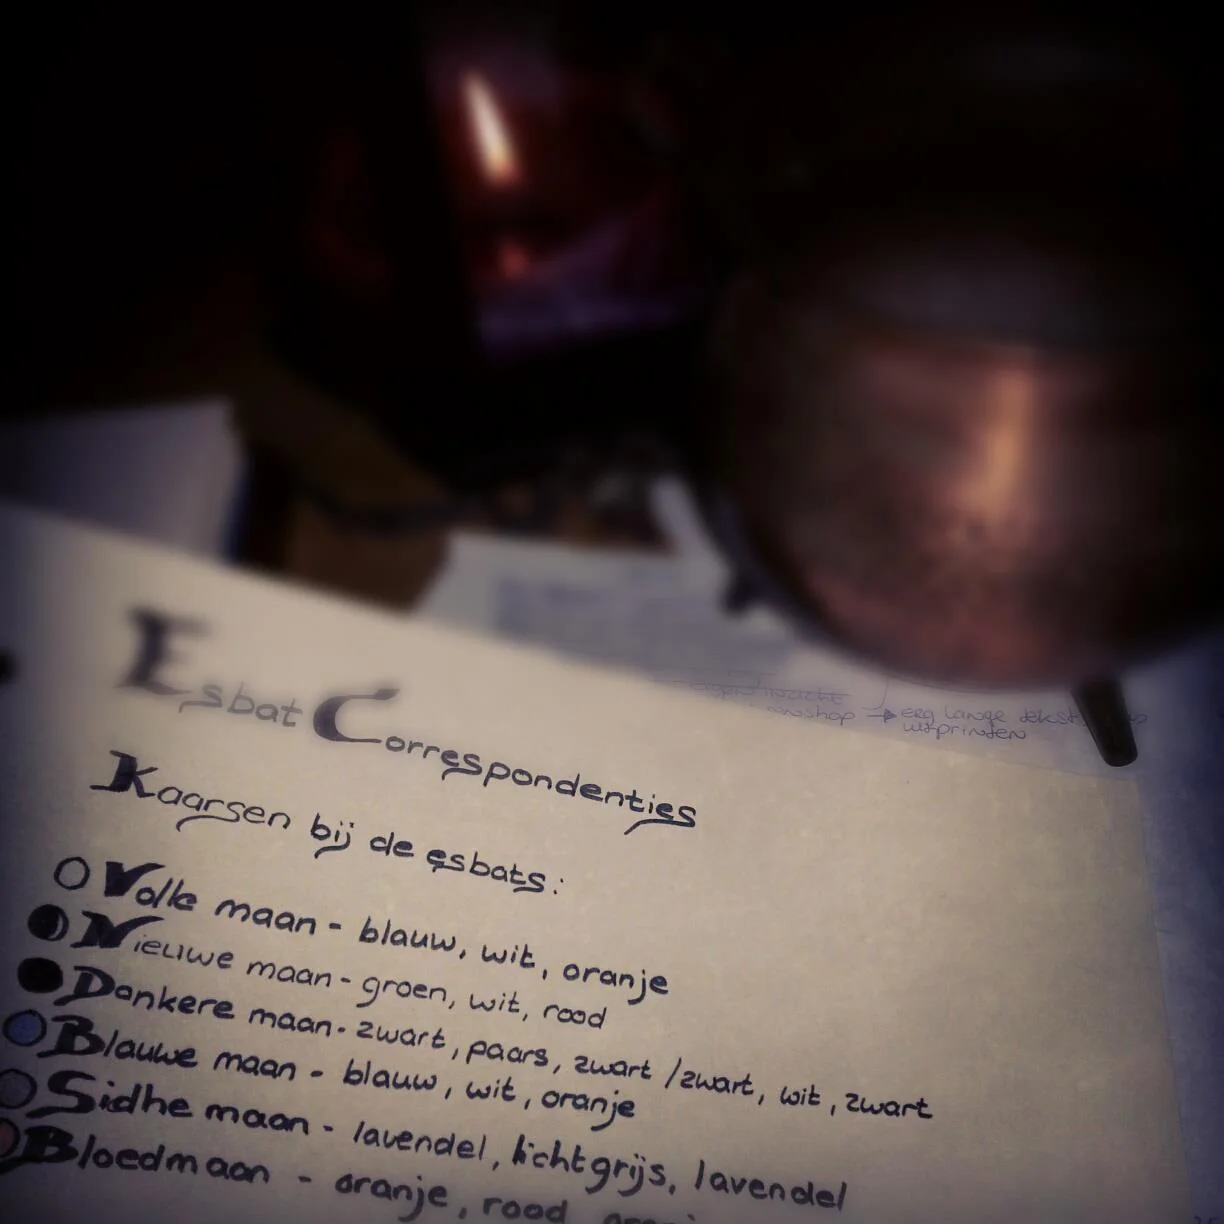 erg lange tekst
uitprinten
Esbat Correspondenties
Kaarsen bij de esbats:
Volle maan - blauw, wit, oranje
Nieuwe maan - groen, wit, rood
Donkere maan - zwart, paars, zwart / zwart, wit, zwart
Blauwe maan - blauw, wit, oranje
Sidhe maan - lavendel, lichtgrijs, lavendel
Bloedmaan - oranje, rood